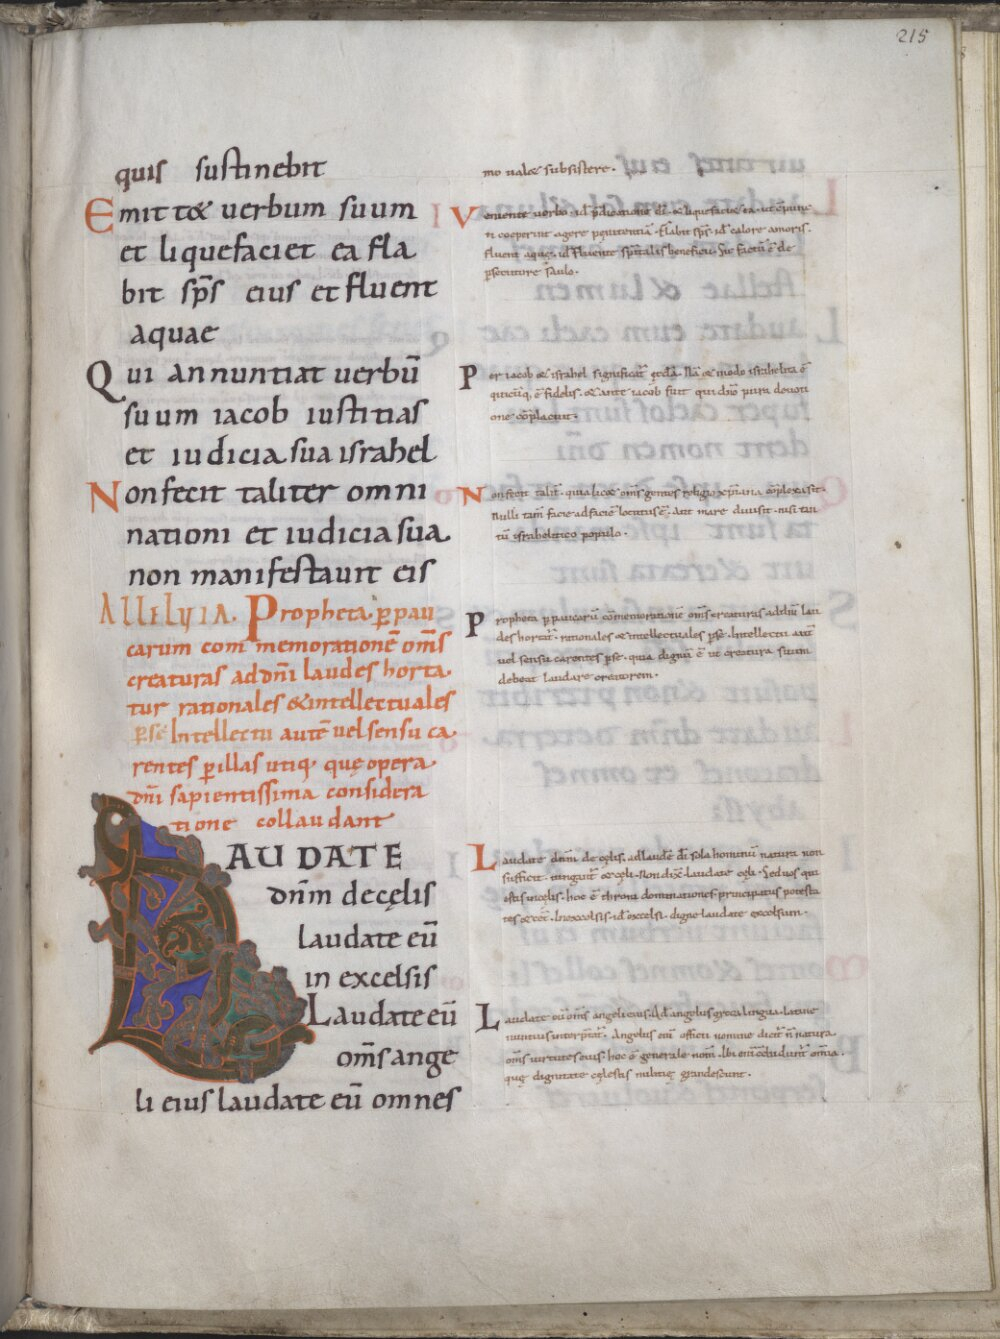 215
quis sustinebit
Emittet uerbum suum
et liquefaciet ea fla
bit sp̄s eius et fluent
aquae
Qui annuntiat uerbū
suum iacob iustitias
et iudicia sua israhel
Non fecit taliter omni
nationi et iudicia sua
non manifestauit eis
ALLELUIA. Propheta ꝑ pau
carum commemorationē om̄s
creaturas ad dn̄i laudes horta
tur rationales & intellectuales
ꝑ sé Intellectu autē uel sensu ca
rentes ꝑ illas utiq quę opera
dn̄i sapientissima considera
tione collaudant
LAUDATE
dn̄m de cęlis
laudate eū
in excelsis
Laudate eū
om̄s ange
li eius laudate eū omnes
mo ualet subsistere.
Veniente uerbo. id p̄dicatione et liquefacie
ti coeperint agere penitentiā. flabit sp̄s. id calore amoris.
fluent aquę. id fluente sp̄italis beneficii. Sic factū ē de
ꝑsecutore saulo.
Per iacob et israhel significat modo israhelita ē
quicūq ē fidelis. et ante iacob fuit qui dn̄o pura deuoti
one cōplacuit.
Non fecit talit̄. quia licet om̄s gentes religio xp̄iana cōplexa sit.
Nulli tam̄ facie ad faciē locutus ē. aut mare diuisit. nisi tan
tū israhelitico populo.
Propheta ꝑ paucarū cōmemorationē om̄s creaturas ad dn̄i lau
des hortat̄. rationales et intellectuales ꝑ se. Intellectu aūt
uel sensu carentes ꝑ se. quia dignū ē ut creatura suum
debeat laudare creatorem.
Laudate dn̄m de cęlis. ad laudē dī sola hominū natura non
sufficit. iungant̄ et cęli. Non dix̄ laudate cęli. Sed uos qui
estis in cęlis. hoc ē throni dominationes principatus potesta
tes et cet̄. In excelsis. id excelsi. digne laudate excelsum.
Laudate eū om̄s angeli eius. Ad angelus greca lingua. latine
nuntius interp̄tat̄. Angelus eni officii nomine dicit̄ n̄ natura.
om̄s uirtutes eius hoc ē generale nom̄. Ibi enī cōcludunt̄ om̄ia.
quę dignitate cęlestis militię grandescunt.